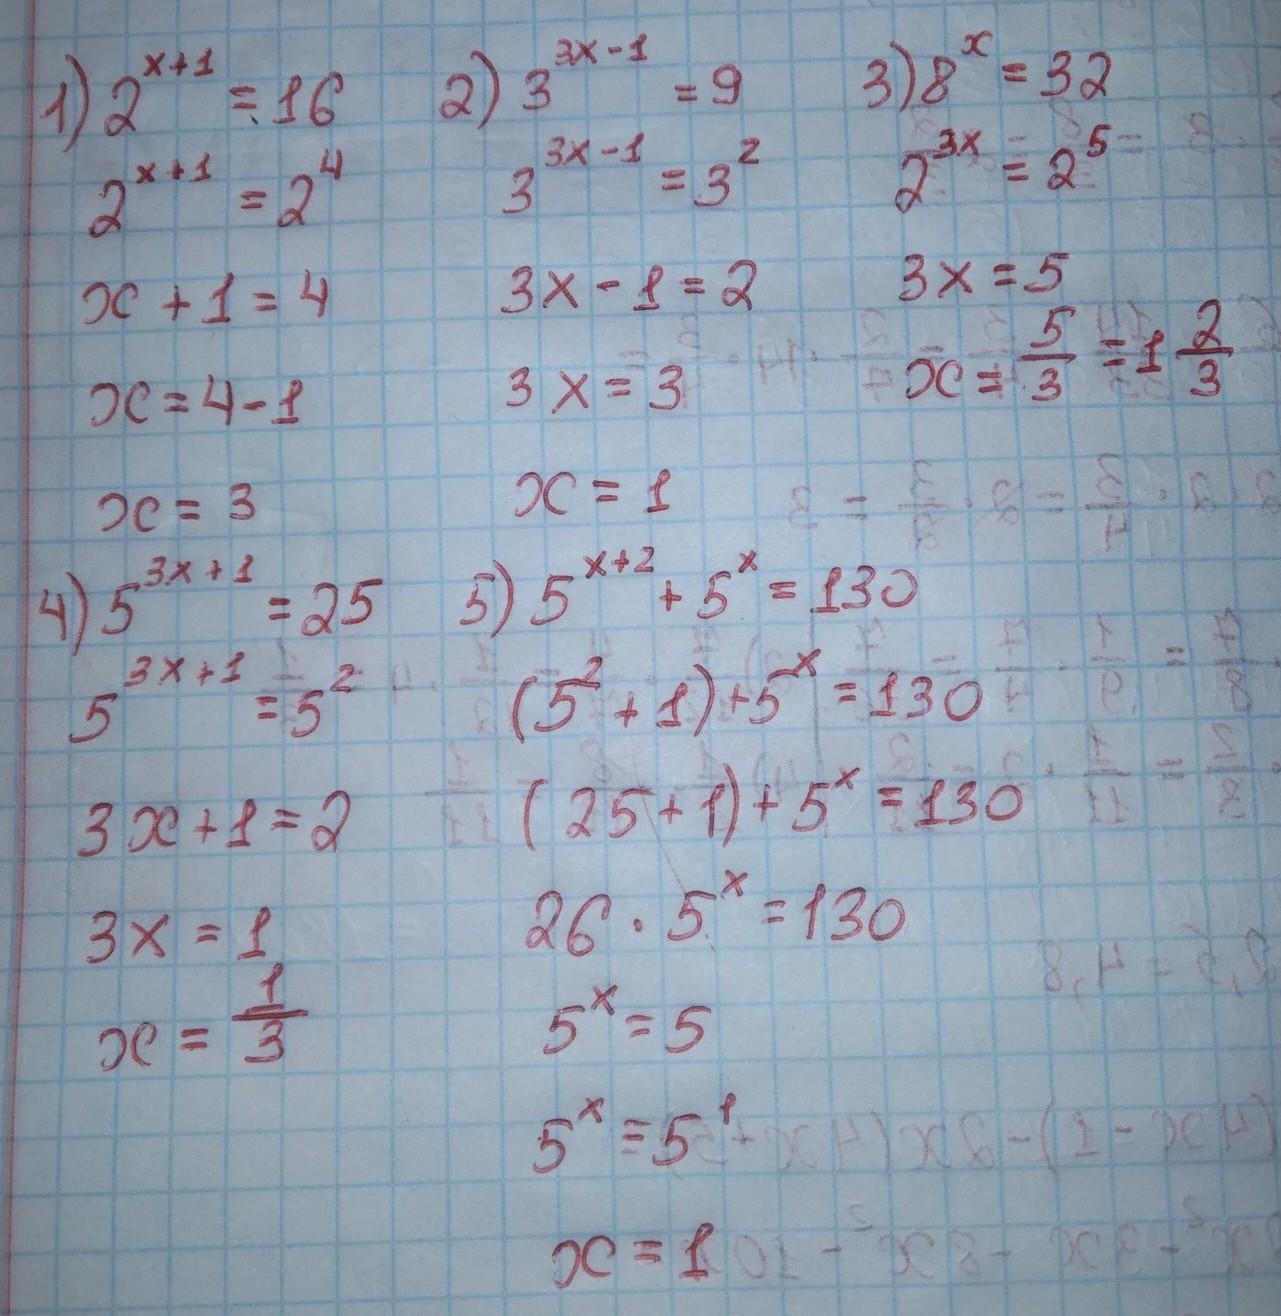 1) 2^{x+1} = 16
2^{x+1} = 2^4
x + 1 = 4
x = 4 - 1
x = 3
2) 3^{3x-1} = 9
3^{3x-1} = 3^2
3x - 1 = 2
3x = 3
x = 1
3) 8^x = 32
2^{3x} = 2^5
3x = 5
x = 5/3 = 1 2/3
4) 5^{3x+1} = 25
5^{3x+1} = 5^2
3x + 1 = 2
3x = 1
x = 1/3
5) 5^{x+2} + 5^x = 130
(5^2 + 1) + 5^x = 130
(25 + 1) + 5^x = 130
26 · 5^x = 130
5^x = 5
5^x = 5^1
x = 1